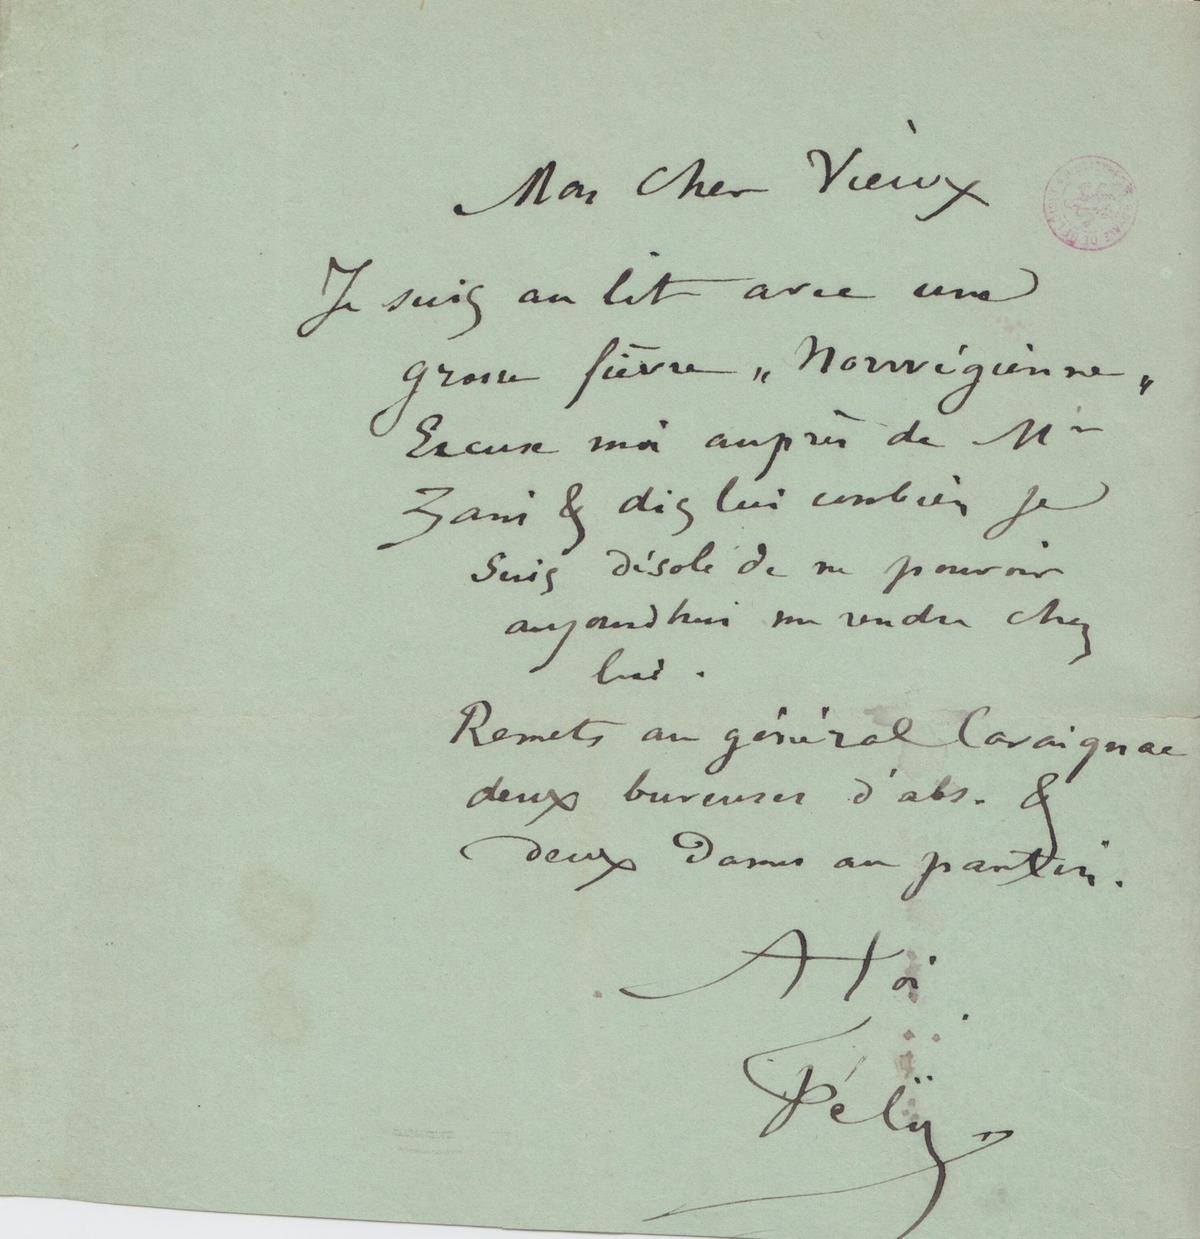 Mon Cher Vieux
Je suis au lit avec une
grosse fièvre „Norwégienne„
Excuse moi auprès de Mr
Zani & dis lui combien je
suis désolé de ne pouvoir
aujourd'hui me rendre chez
lui.
Remets au général Cavaignac
deux buveuses d'abs. &
deux Dames au pantin.
A toi
Fély